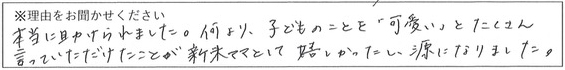 ※理由をお聞かせください
本当に助けられました。何より、子どものことを「可愛い」とたくさん
言っていただけたことが新米ママとして嬉しかったし、源になりました。